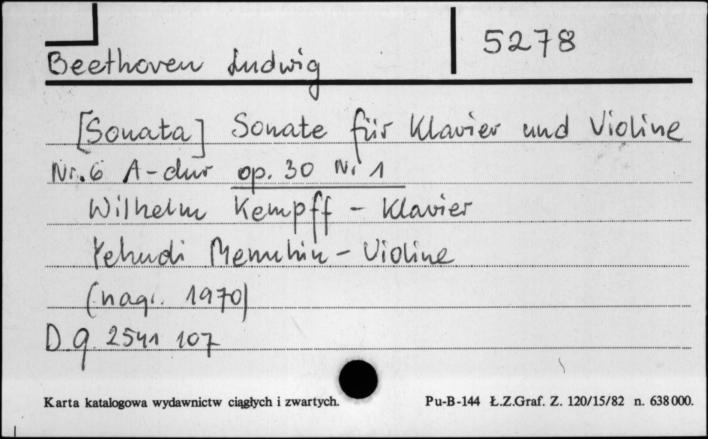 Beethoven Ludwig
5278
[Sonata] Sonate für Klavier und Violine
Nr. 6 A-dur op. 30 Nr 1
Wilhelm Kempff - Klavier
Yehudi Menuhin - Violine
(nagr. 1970)
D g 2541 107
Karta katalogowa wydawnictw ciągłych i zwartych.
Pu-B-144 Ł.Z.Graf. Z. 120/15/82 n. 638000.